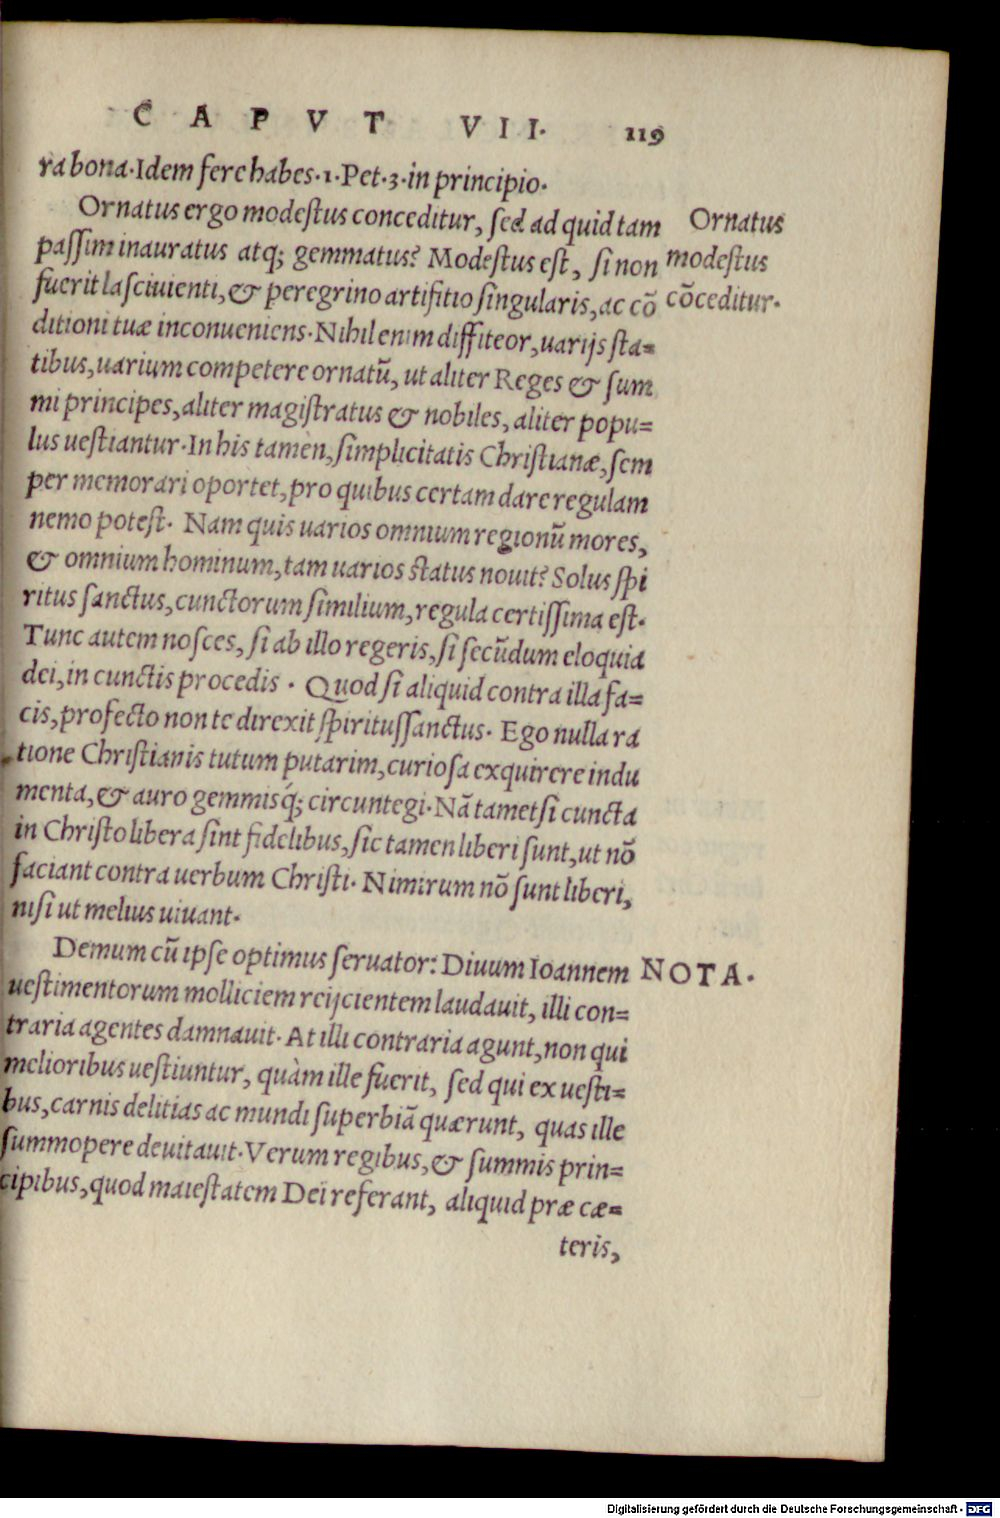 CAPVT VII. 119
ra bona. Idem fere habes. 1. Pet. 3. in principio.
Ornatus ergo modestus conceditur, sed ad quid tam
Ornatus
passim inauratus atq; gemmatus? Modestus est, si non
modestus
fuerit lasciuienti, & peregrino artifitio singularis, ac cō
cōceditur.
ditioni tuæ inconueniens. Nihil enim diffiteor, uarijs sta=
tibus, uarium competere ornatū, ut aliter Reges & sum
mi principes, aliter magistratus & nobiles, aliter popu=
lus uestiantur. In his tamèn, simplicitatis Christianæ, sem
per memorari oportet, pro quibus certam dare regulam
nemo potest. Nam quis uarios omnium regionū mores,
& omnium hominum, tam uarios status nouit? Solus spi
ritus sanctus, cunctorum similium, regula certissima est.
Tunc autem nosces, si ab illo regeris, si secūdum eloquia
dei, in cunctis procedis. Quod si aliquid contra illa fa=
cis, profecto non te direxit spiritussanctus. Ego nulla ra
tione Christianis tutum putarim, curiosa exquirere indu
menta, & auro gemmisq́; circuntegi. Nā tametsi cuncta
in Christo libera sint fidelibus, sic tamen liberi sunt, ut nō
faciant contra uerbum Christi. Nimirum nō sunt liberi,
nisi ut melius uiuant.
Demum cū ipse optimus seruator: Diuum Ioannem
NOTA.
uestimentorum molliciem reijcientem laudauit, illi con=
traria agentes damnauit. At illi contraria agunt, non qui
melioribus uestiuntur, quàm ille fuerit, sed qui ex uesti=
bus, carnis delitias ac mundi superbiā quærunt, quas ille
summopere deuitauit. Verum regibus, & summis prin=
cipibus, quod maiestatem Dei referant, aliquid præ cæ=
teris,
Digitalisierung gefördert durch die Deutsche Forschungsgemeinschaft - DFG